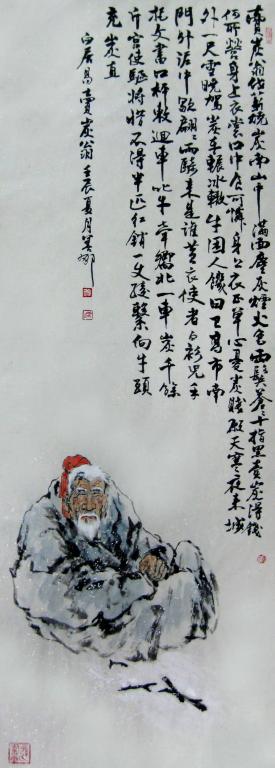 賣炭翁伐薪燒炭南山中滿面塵灰煙火色兩鬢蒼蒼十指黑賣炭得錢
何所營身上衣裳口中食可憐身上衣正單心憂炭賤願天寒夜來城
外一尺雪曉駕炭車輾冰轍牛困人饑日已高市南
門外泥中歇翩翩兩騎來是誰黃衣使者白衫兒手
把文書口稱敕迴車叱牛牽向北一車炭千餘
斤宮使驅將惜不得半匹紅綃一丈綾繫向牛頭
充炭直
白居易賣炭翁 壬辰夏月